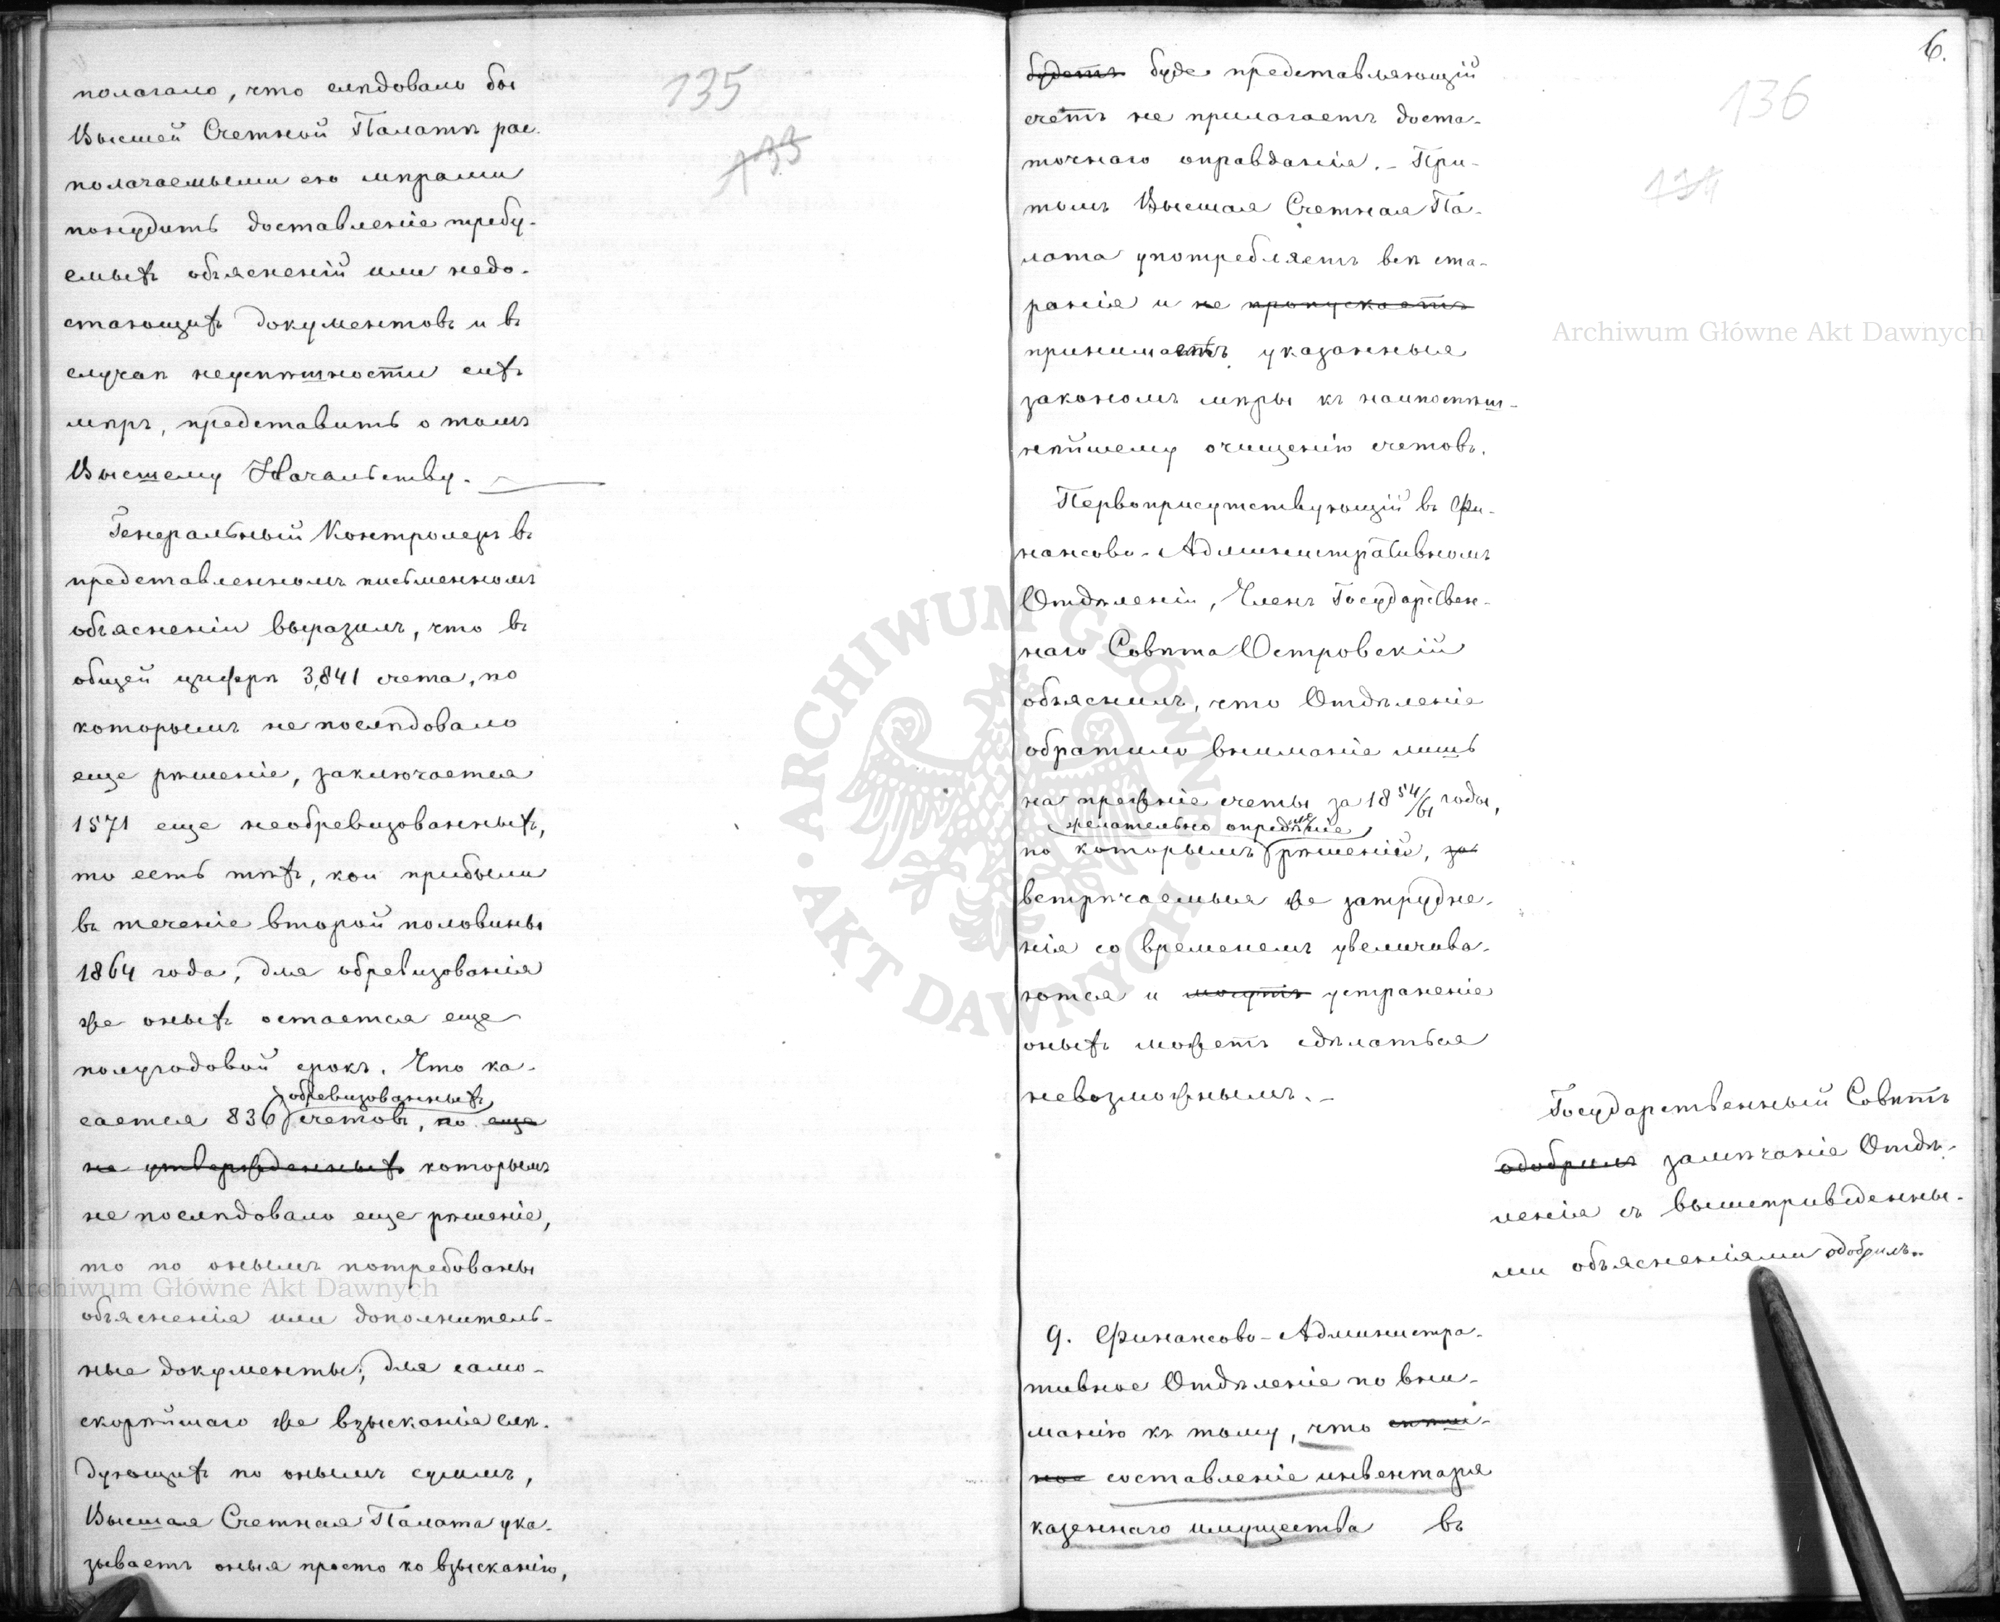 135
133
полагало, что слѣдовало бы
Высшей Счетной Палатѣ рас-
полагаемыми ею мѣрами
понудить доставленіе требу-
емыхъ объясненій или недо-
стающихъ документовъ и въ
случаѣ неуспѣшности сихъ
мѣръ, представить о томъ
Высшему Начальству.
Генеральный Контролеръ въ
представленномъ письменномъ
объясненіи выразилъ, что въ
общей цифрѣ 3,841 счета, по
которымъ не послѣдовало
еще рѣшеніе, заключается
1571 еще необревизованныхъ,
то есть тѣхъ, кои прибыли
въ теченіе второй половины
1864 года, для обревизованія
же оныхъ остается еще
полугодовой срокъ. Что ка-
обревизованныхъ
сается 836 счетовъ, по еще
не утвержденныхъ которымъ
не послѣдовало еще рѣшеніе,
то по онымъ потребованы
объясненія или дополнитель-
ные документы; для само-
скорѣйшаго же взысканія слѣ-
дующихъ по онымъ суммъ,
Высшая Счетная Палата ука-
зываетъ оныя просто ко взысканію,
6.
136
134
будетъ буде представляющій
счетъ не прилагаетъ доста-
точнаго оправданія. - При-
томъ Высшая Счетная Па-
лата употребляетъ всѣ ста-
ранія и не пропускаетъ
принимаетъ указанныя
закономъ мѣры къ наипоспѣш-
нѣйшему очищенію счетовъ.
Первоприсутствующій въ Фи-
нансово-Административномъ
Отдѣленіи, Членъ Государствен-
наго Совѣта Островскій
объяснилъ, что Отдѣленіе
обратило вниманіе лишь
на прежніе счеты за 18 54/61 годы,
желательно опредѣленіе
по которымъ рѣшеній, за
встрѣчаемыя же затрудне-
нія со временемъ увеличива-
ются и могутъ устраненіе
оныхъ можетъ сдѣлаться
невозможнымъ. -
Государственный Совѣтъ
одобрилъ замѣчаніе Отдѣ-
ленія съ вышеприведенны-
ми объясненіями одобрилъ.
9. Финансово-Администра-
тивное Отдѣленіе по вни-
манію къ тому, что
составленіе инвентаря
казеннаго имущества въ
Archiwum Główne Akt Dawnych
Archiwum Główne Akt Dawnych
ARCHIWUM GŁÓWNE • AKT DAWNYCH •